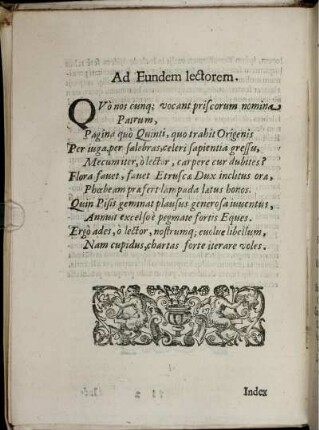 Ad Eundem lectorem.
QVò nos cunq; vocant priscorum nomina
Patrum,
Pagina quò Quinti, quo trahit Origenis
Per iuga, per salebras, celeri sapientia gressu,
Mecum iter, ò lector, carpere cur dubites?
Flora fauet, fauet Etruscæ Dux inclitus oræ,
Phœbeam præfert lampada latus honos.
Quin Pisis geminat plausus generosa iuuentus,
Annuit excelso è pegmate fortis Eques.
Ergò ades, o lector, nostrumq; euolue libellum,
Nam cupidus, chartas forte iterare voles.
Index